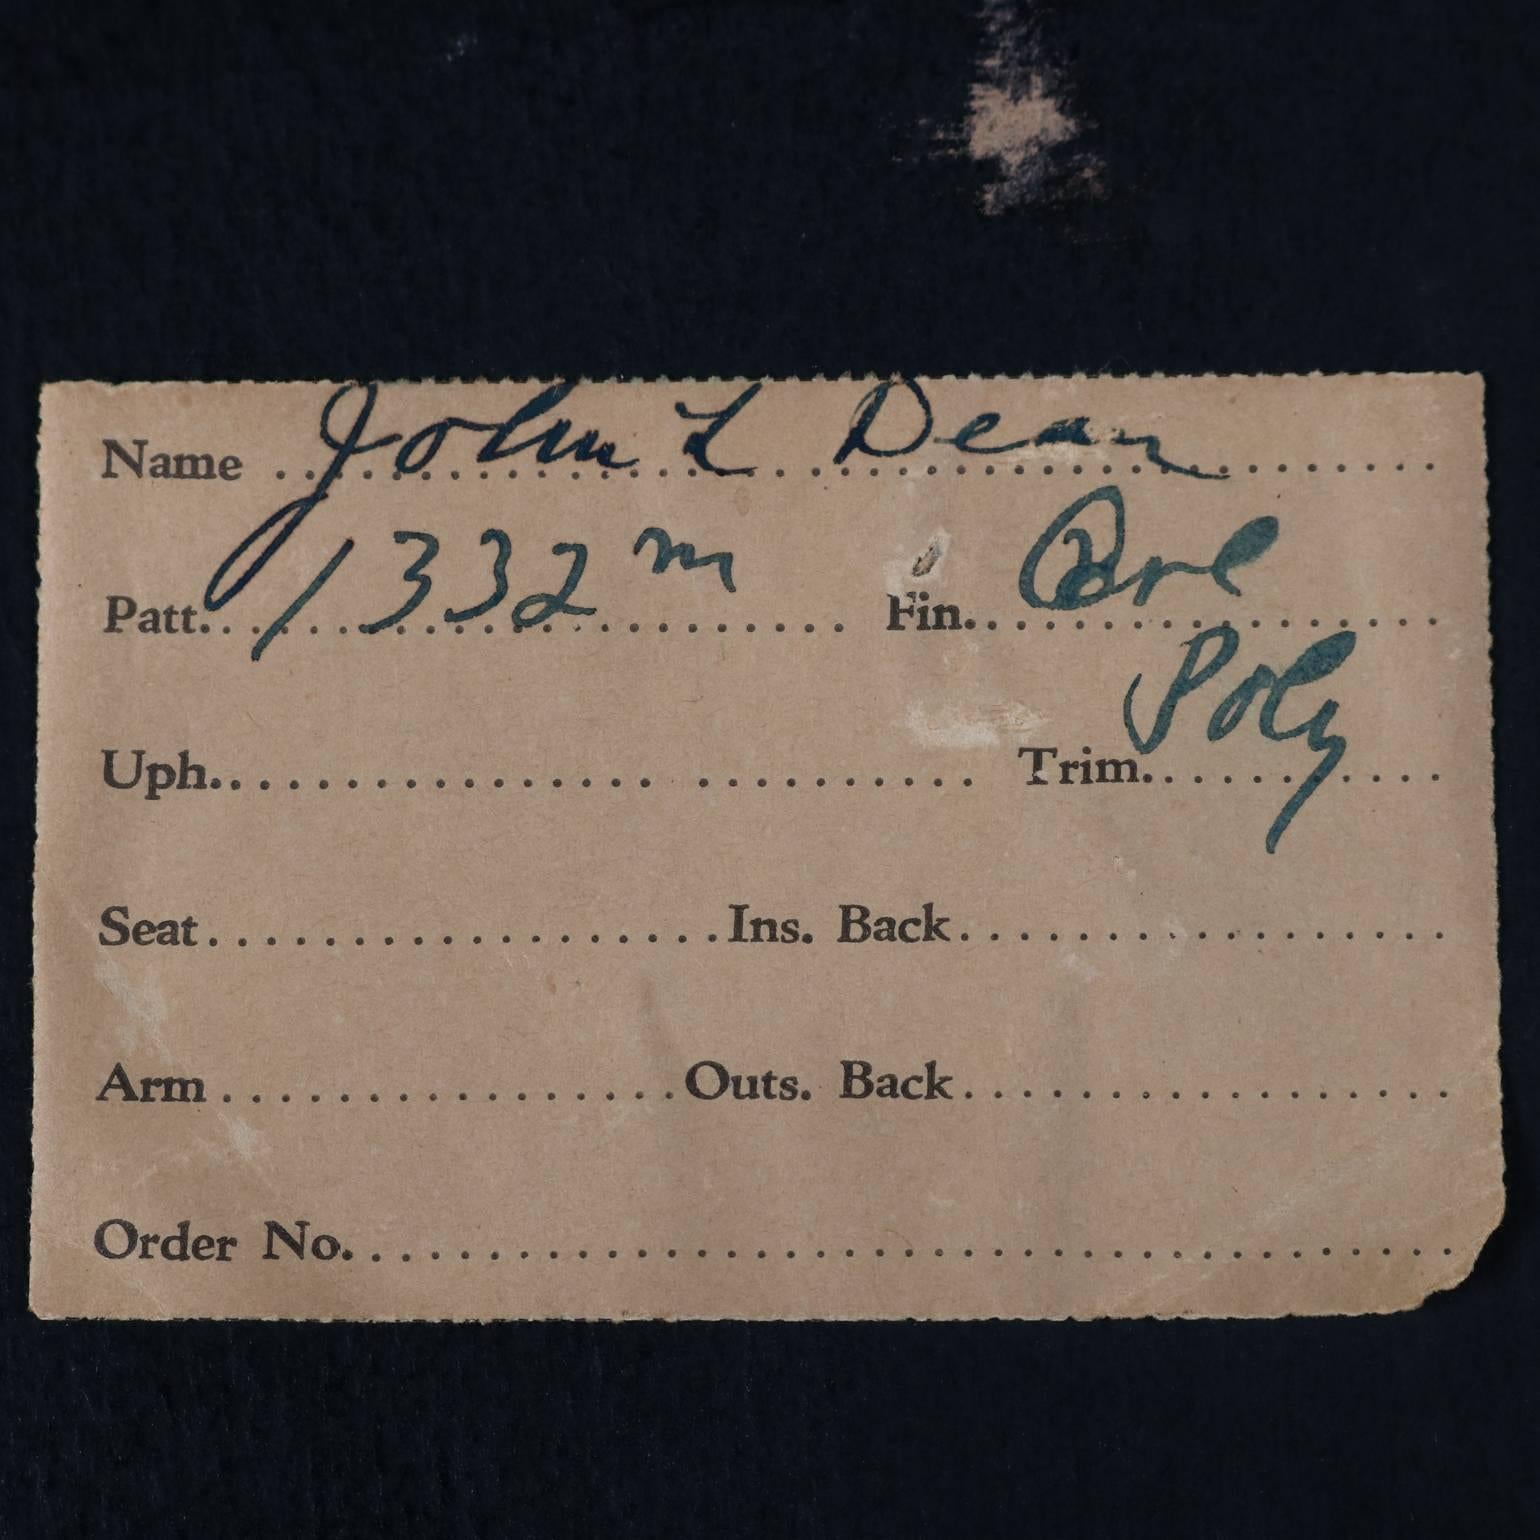 Name John L Dean
Patt. 1332 m Fin.
Poly
Uph. Trim.
Seat Ins. Back
Arm Outs. Back
Order No.